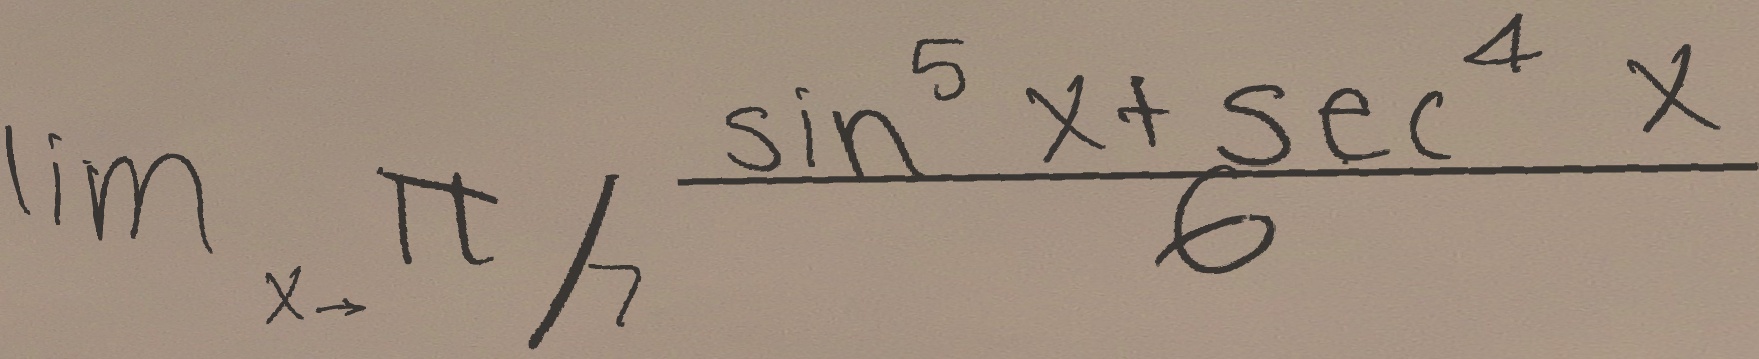 lim x→π/7 (sin^5 x + sec^4 x)/6